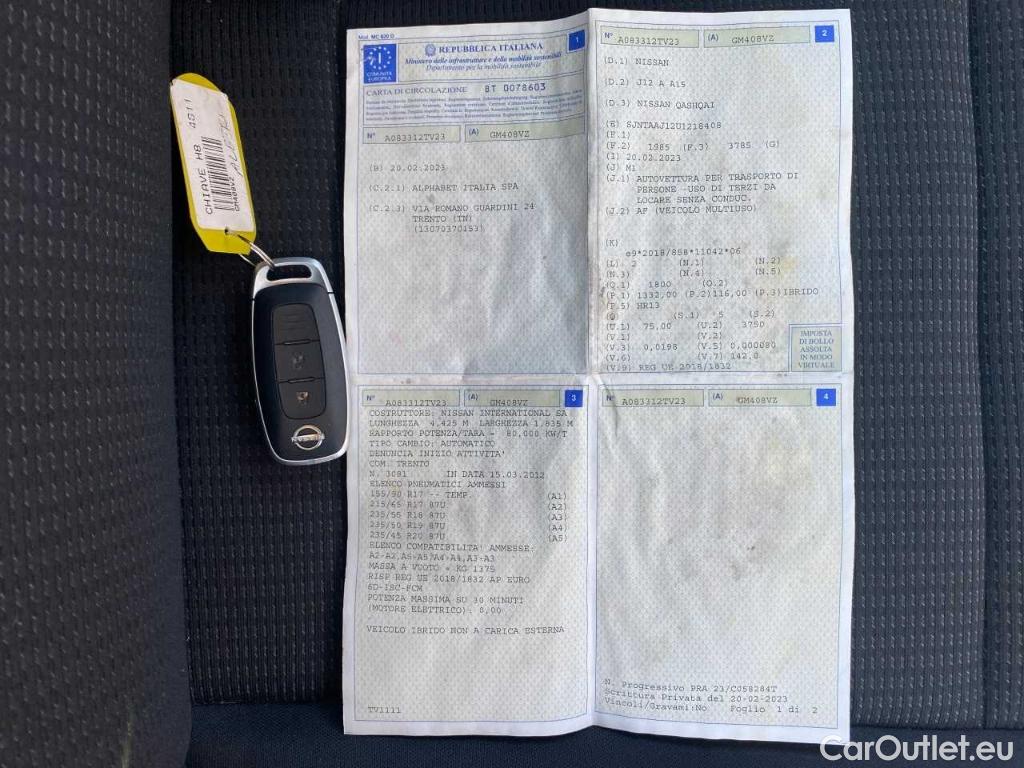 CHIAVE HB 4511
GM408VZ
NISSAN
Mod. MC 820 D
1
COMUNITÀ
EUROPEA
REPUBBLICA ITALIANA
Ministero delle infrastrutture e della mobilità sostenibili
Dipartimento per la mobilità sostenibile
CARTA DI CIRCOLAZIONE BT 0078603
N° A083312TV23 (A) GM408VZ
(B) 20.02.2023
(C.2.1) ALPHABET ITALIA SPA
(C.2.3) VIA ROMANO GUARDINI 24
TRENTO (TN)
(13070370153)
N° A083312TV23 (A) GM408VZ 2
(D.1) NISSAN
(D.2) J12 A A15
(D.3) NISSAN QASHQAI
(E) SJNTAAJ12U1218408
(F.1)
(F.2) 1985 (F.3) 3785 (G)
(I) 20.02.2023
(J) M1
(J.1) AUTOVETTURA PER TRASPORTO DI
PERSONE -USO DI TERZI DA
LOCARE SENZA CONDUC.
(J.2) AF (VEICOLO MULTIUSO)
(K)
e9*2018/858*11042*06
(L) 2 (N.1) (N.2)
(N.3) (N.4) (N.5)
(O.1) 1800 (O.2)
(P.1) 1332,00 (P.2)116,00 (P.3)IBRIDO
(P.5) HR13
(Q) (S.1) 5 (S.2)
(U.1) 75,00 (U.2) 3750
(V.1) (V.2)
(V.3) 0,0198 (V.5) 0,000080
(V.6) (V.7) 142,0
(V.9) REG UE 2018/1832
IMPOSTA
DI BOLLO
ASSOLTA
IN MODO
VIRTUALE
N° A083312TV23 (A) GM408VZ 3
COSTRUTTORE: NISSAN INTERNATIONAL SA
LUNGHEZZA 4.425 M LARGHEZZA 1.835 M
RAPPORTO POTENZA/TARA = 80,000 KW/T
TIPO CAMBIO: AUTOMATICO
DENUNCIA INIZIO ATTIVITA'
COM. TRENTO
N. 3081 IN DATA 15.03.2012
ELENCO PNEUMATICI AMMESSI
155/90 R17 -- TEMP. (A1)
215/65 R17 87U (A2)
235/55 R18 87U (A3)
235/50 R19 87U (A4)
235/45 R20 87U (A5)
ELENCO COMPATIBILITA' AMMESSE:
A2-A2,A5-A5,A4-A4,A3-A3
MASSA A VUOTO = KG 1375
RISP REG UE 2018/1832 AP EURO
6D-ISC-FCM
POTENZA MASSIMA SU 30 MINUTI
(MOTORE ELETTRICO): 0,00
VEICOLO IBRIDO NON A CARICA ESTERNA
TV1111
N° A083312TV23 (A) GM408VZ 4
N. Progressivo PRA 23/C058284T
Scrittura Privata del 20-02-2023
Vincoli/Gravami:No Foglio 1 di 2
CarOutlet.eu